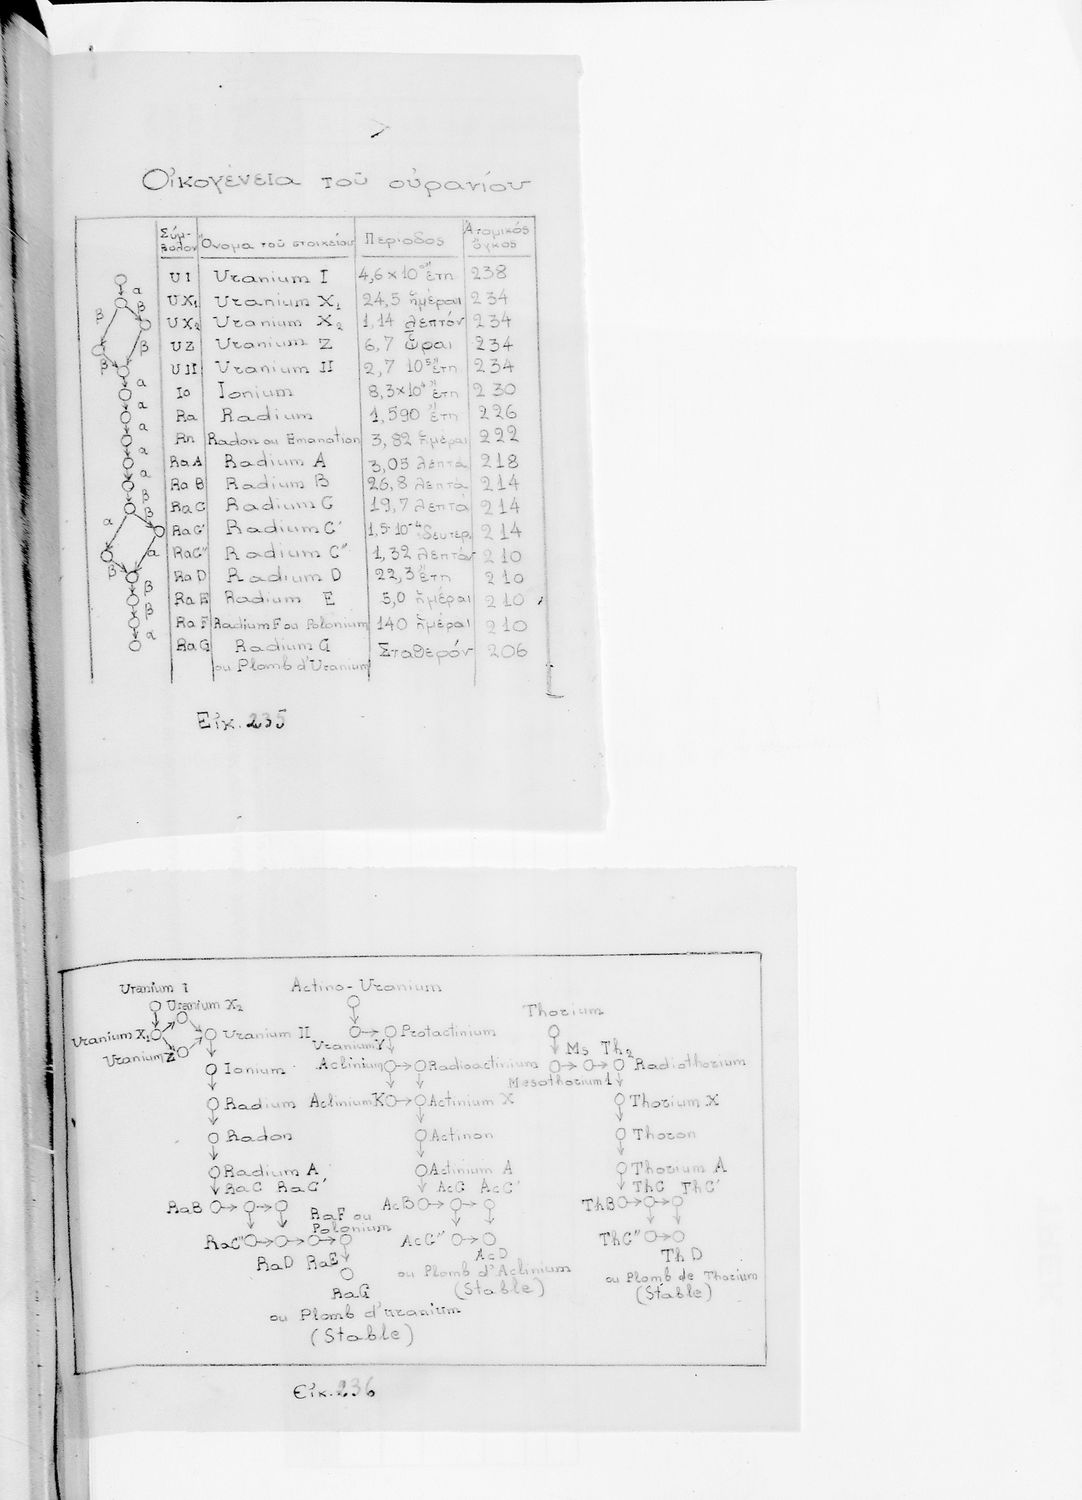 Οἰκογένεια τοῦ οὐρανίου
Σύμ-βολον Ὄνομα τοῦ στοιχείου Περίοδος Ἀτομικός ὄγκος
α
β
β
β
β
α
α
α
α
α
β
β
α
α
β
β
β
α
U I Uranium I 238
U X₁ Uranium X₁ 24,5 ἡμέραι 234
U X₂ Uranium X₂ 1,14 λεπτόν 234
U Z Uranium Z 6,7 ὧραι 234
U II Uranium II 2,7 10⁵ ἔτη 234
Io Ionium 8,3×10⁴ ἔτη 230
Ra Radium 1,590 ἔτη 226
Rn Radon ou Emanation 3,82 ἡμέραι 222
Ra A Radium A 3,05 λεπτά 218
Ra B Radium B 26,8 λεπτά 214
Ra C Radium C 19,7 λεπτά 214
Ra C' Radium C' 1,5·10⁻⁴ δευτερ. 214
Ra C" Radium C" 1,32 λεπτόν 210
Ra D Radium D 22,3 ἔτη 210
Ra E Radium E 5,0 ἡμέραι 210
Ra F Radium F ou Polonium 140 ἡμέραι 210
Ra G Radium G Σταθερόν 206
ou Plomb d'Uranium
Εἰκ. 235
Uranium I
Uranium X₂
Uranium X₁
Uranium Z
Uranium II
Ionium
Radium
Radon
Radium A
RaC RaC'
RaB
RaF ou
Polonium
RaC"
RaD RaE
RaG
ou Plomb d'Uranium
(Stable)
Actino-Uranium
Protactinium
Uranium Y
Actinium
Radioactinium
Actinium K
Actinium X
Actinon
Actinium A
AcC AcC'
AcB
AcC"
AcD
ou Plomb d'Actinium
(Stable)
Thorium
Ms Th₂
Radiothorium
Mesothorium 1
Thorium X
Thoron
Thorium A
ThC ThC'
ThB
ThC"
Th D
ou Plomb de Thorium
(Stable)
Εἰκ. 236